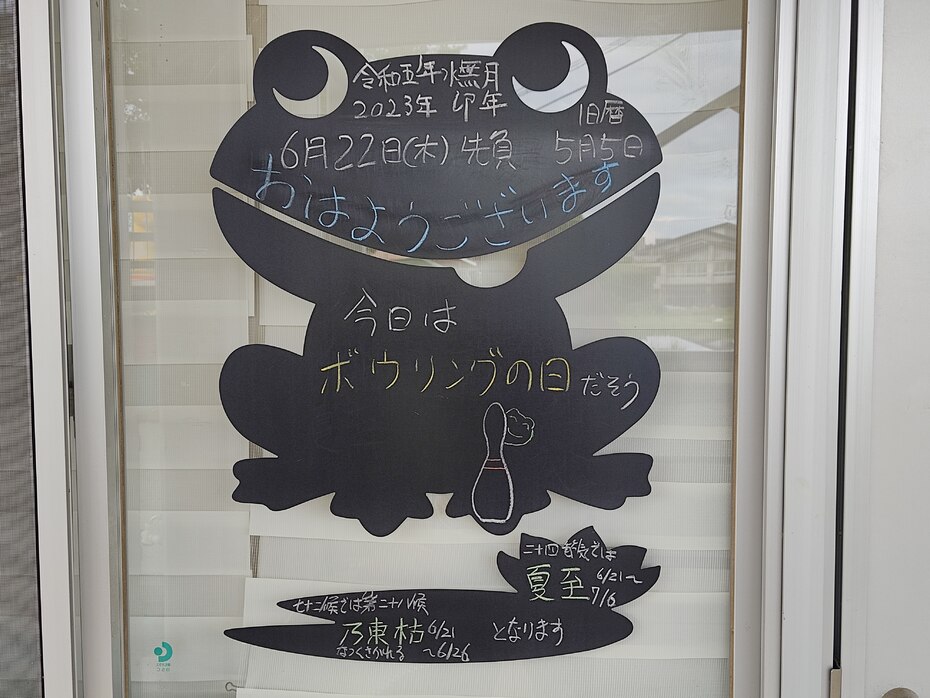 令和五年 水無月
2023年 卯年
旧暦
6月22日(木) 先負 5月5日
おはようございます
今日は
ボウリングの日だそう
二十四節気では
夏至 6/21〜
7/6
七十二候では第二十八候
乃東枯 6/21 となります
なつくさかれる 〜6/26